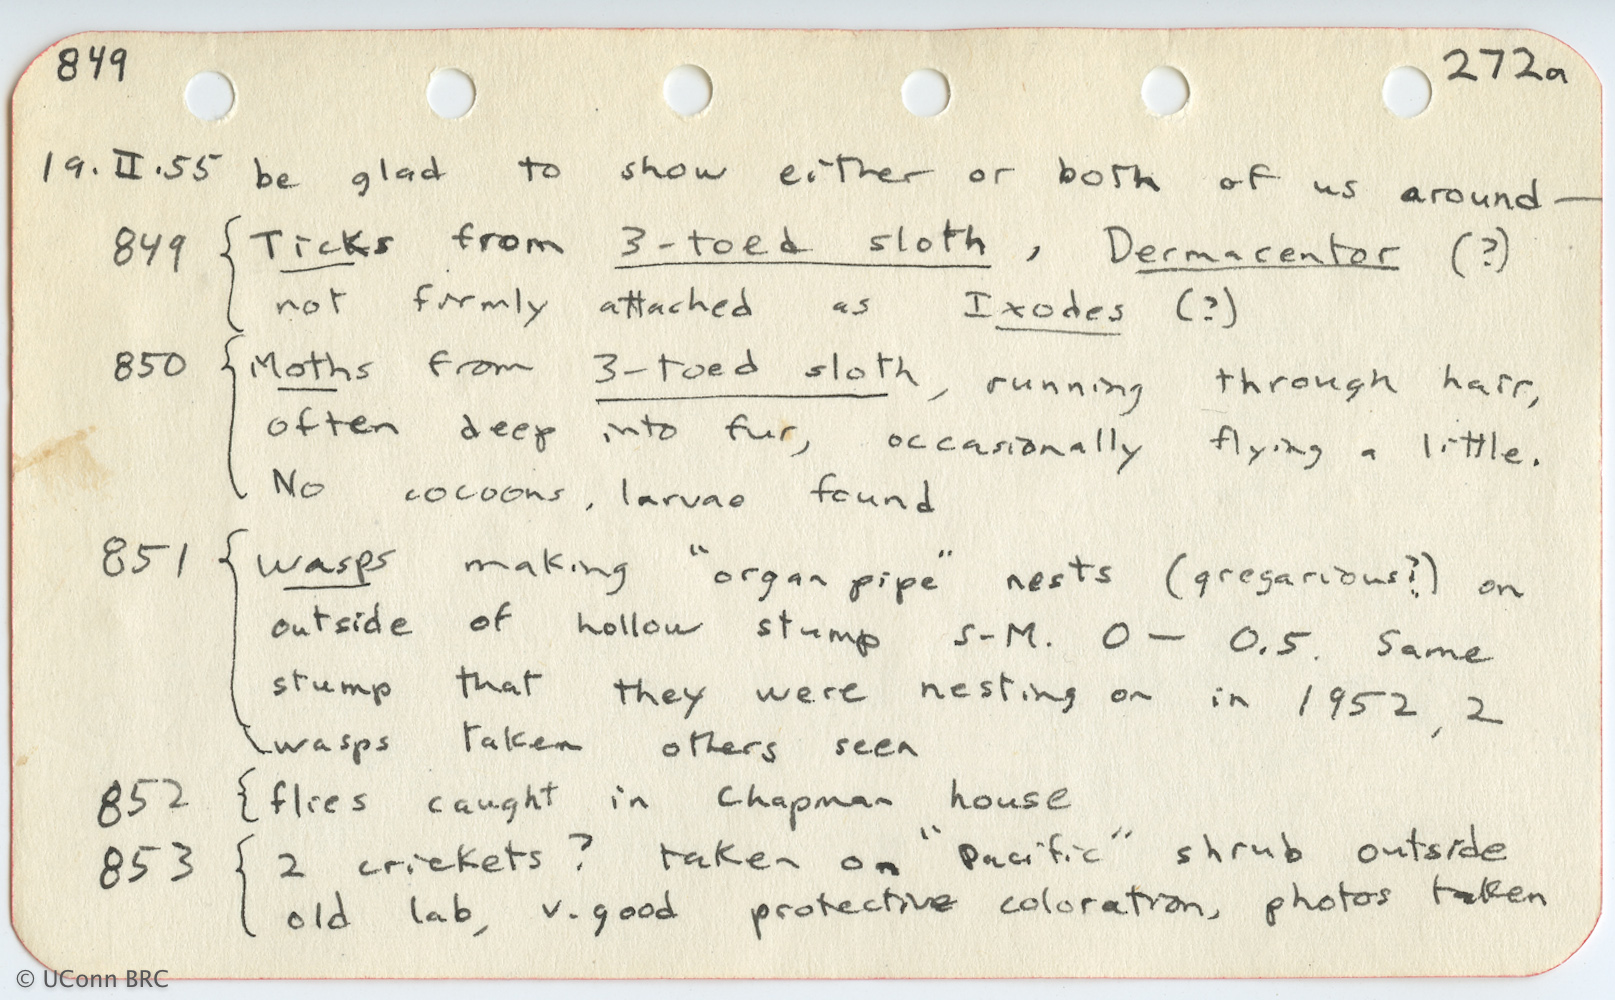 849 272a
19.II.55 be glad to show either or both of us around—
849 { Ticks from 3-toed sloth, Dermacentor (?)
not firmly attached as Ixodes (?)
850 { Moths from 3-toed sloth, running through hair,
often deep into fur, occasionally flying a little.
No cocoons, larvae found
851 { wasps making "organ pipe" nests (gregarious?) on
outside of hollow stump S-M. 0 — 0.5. Same
stump that they were nesting on in 1952, 2
wasps taken others seen
852 { flies caught in Chapman house
853 { 2 crickets? taken on "Pacific" shrub outside
old lab, v. good protective coloration, photos taken
© UConn BRC